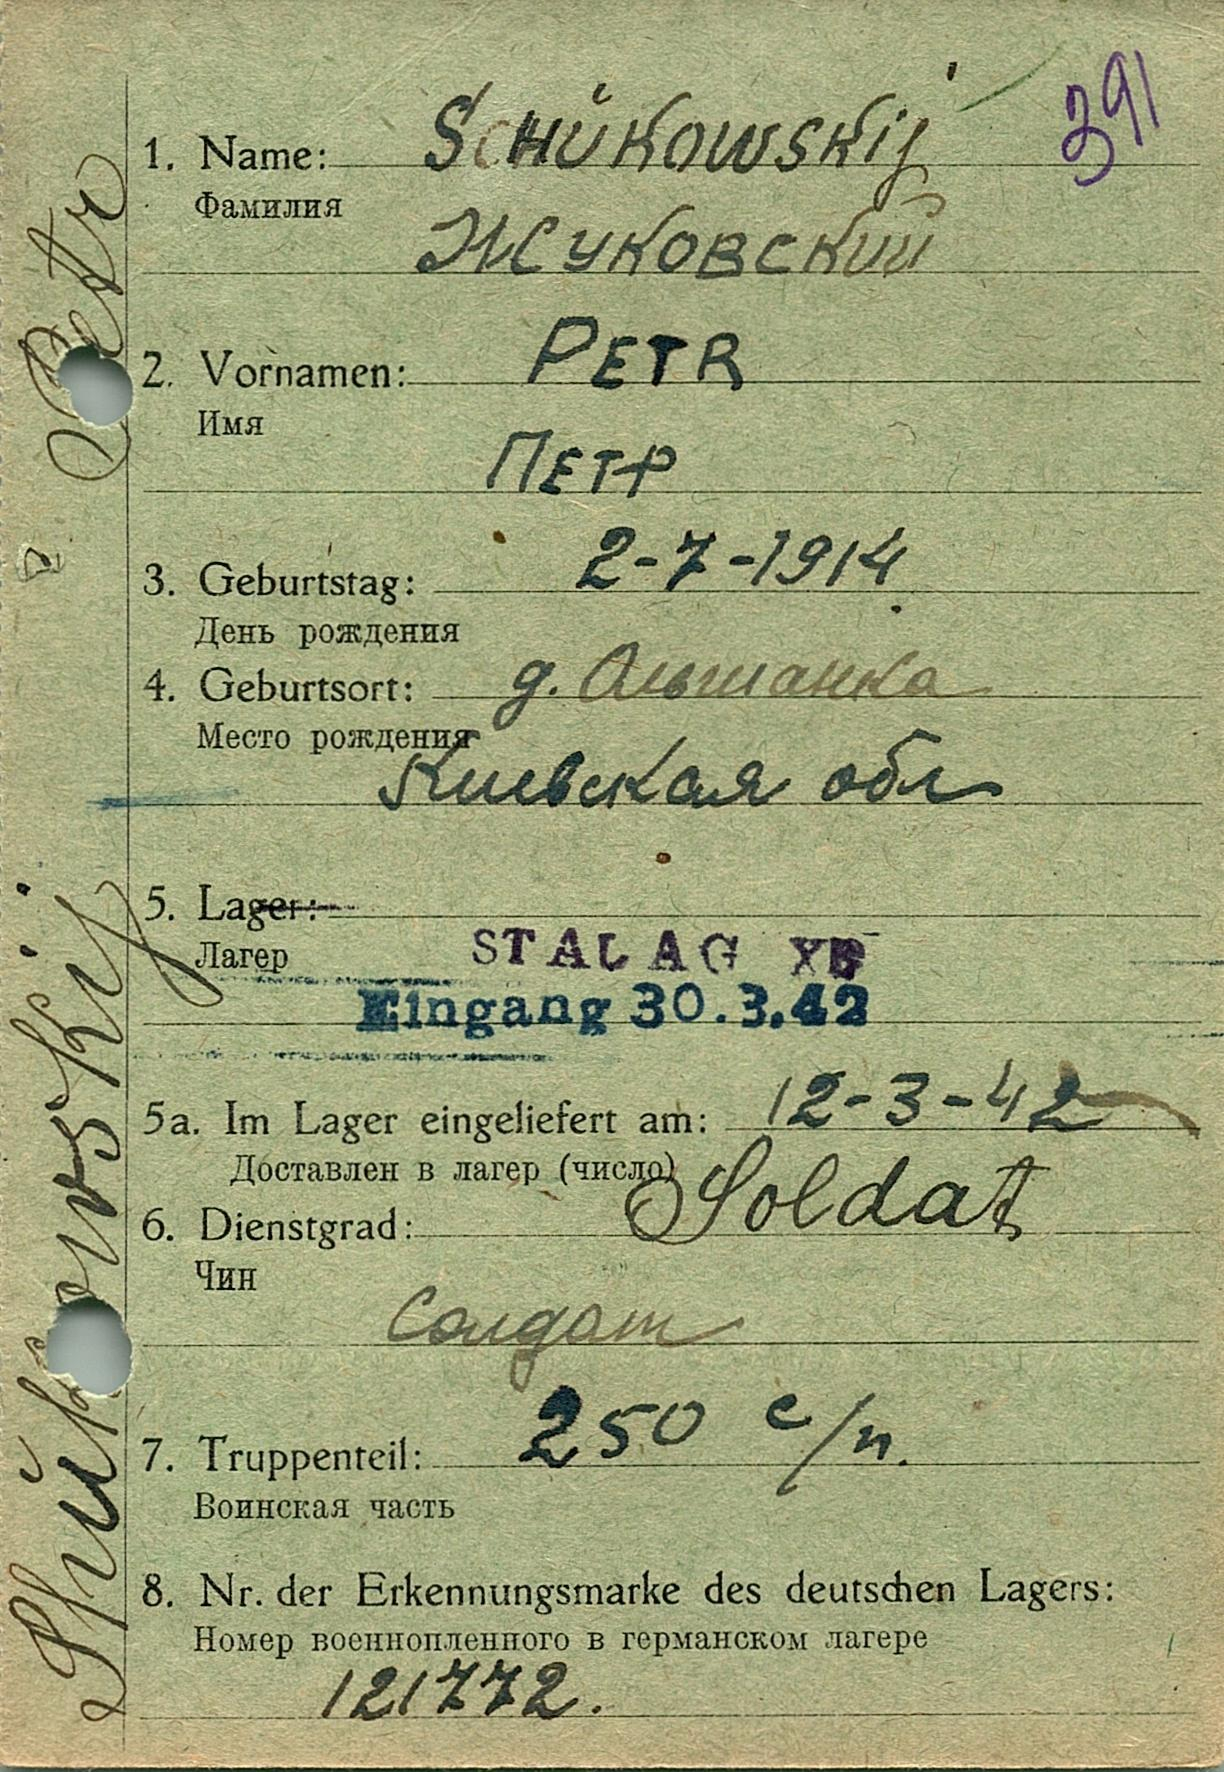 391
1. Name: SCHŬKOWSKij
Фамилия
Жуковский
2. Vornamen: PETR
Имя
ПЕТР
3. Geburtstag: 2-7-1914
День рождения
4. Geburtsort: д. Ольшанка
Место рождения
Киевская обл
5. Lager:
Лагер
STALAG XB
Eingang 30.3.42
5a. Im Lager eingeliefert am: 12-3-42
Доставлен в лагер (число)
6. Dienstgrad: Soldat
Чин
Солдат
7. Truppenteil: 250 с/п.
Воинская часть
8. Nr. der Erkennungsmarke des deutschen Lagers:
Номер военнопленного в германском лагере
121772.
Petr